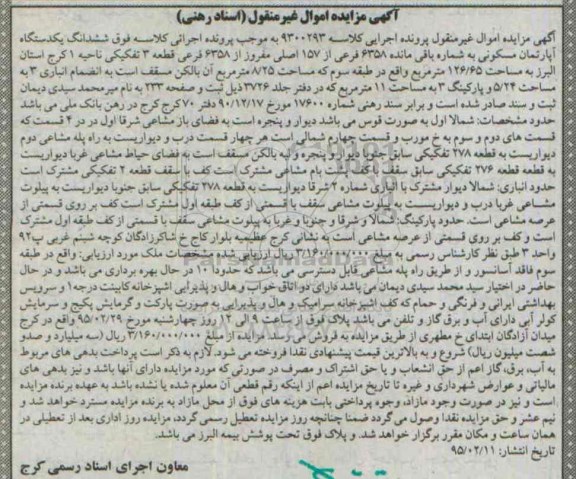 آگهی مزایده اموال غیرمنقول (اسناد رهنی)
آگهی مزایده اموال غیرمنقول پرونده اجرایی کلاسه ۹۳۰۰۲۹۳ به موجب پرونده اجرائی کلاسه فوق ششدانگ یکدستگاه
آپارتمان مسکونی به شماره باقی مانده ۶۳۵۸ فرعی از ۱۵۷ اصلی مفروز از ۶۳۵۸ فرعی قطعه ۳ تفکیکی ناحیه ۱ کرج استان
البرز به مساحت ۱۲۶/۶۵ مترمربع واقع در طبقه سوم که مساحت ۸/۲۵ مترمربع آن بالکن مسقف است به انضمام انباری ۳ به
مساحت ۵/۲۴ و پارکینگ ۳ به مساحت ۱۱ مترمربع که در دفتر جلد ۳۷۲۶ ذیل ثبت و صفحه ۲۳۳ به نام میرمحمد سیدی دیمان
ثبت و سند صادر شده است و برابر سند رهنی شماره ۱۷۶۰۰ مورخ ۹۰/۱۲/۱۷ دفتر ۷۰ کرج کرج در رهن بانک ملی می باشد
حدود مشخصات: شمالا اول به صورت قوس می باشد دیوار و پنجره است به فضای باز مشاعی شرقا اول در در ۴ قسمت که
قسمت های دوم و سوم به خ مورب و قسمت چهارم شمالی است هر چهار قسمت درب و دیواریست به راه پله مشاعی دوم
دیواریست به قطعه ۲۷۸ تفکیکی سابق جنوبا دیوار و پنجره و لبه بالکن مسقف است به فضای حیاط مشاعی غربا دیواریست
به قطعه قطعه ۲۷۶ تفکیکی سابق سقف بام مشاعی مشترک است کف با سقف قطعه ۲ تفکیکی مشترک است
حدود انباری: شمالا دیوار مشترک با انباری شماره ۲ شرقا دیواریست به قطعه ۲۷۸ تفکیکی سابق جنوبا دیواریست به پیلوت
مشاعی غربا درب و دیواریست به پیلوت مشاعی سقف با قسمتی از کف طبقه اول مشترک است کف بر روی قسمتی از
عرصه مشاعی است. حدود پارکینگ: شمالا و شرقا و جنوبا و غربا به پیلوت مشاعی سقف با قسمتی از کف طبقه اول مشترک
است و کف بر روی قسمتی از عرصه مشاعی است به نشانی کرج عظیمیه بلوار کاج خ شاکرزادگان کوچه شبنم غربی پ۹۲
واحد ۳ طبق نظر کارشناس رسمی به مبلغ ۳/۱۶۰/۰۰۰/۰۰۰ ریال ارزیابی شده مشخصات ملک مورد ارزیابی: واقع در طبقه
سوم فاقد آسانسور و از طریق راه پله مشاعی قابل دسترسی می باشد که حدودا ۱۰ در حال بهره برداری می باشد و در حال
حاضر در اختیار سید محمد سیدی دیمان می باشد دارای دو اتاق خواب و هال و پذیرایی آشپزخانه کابینت درجه۱ و سرویس
بهداشتی ایرانی و فرنگی و حمام که کف آشپزخانه سرامیک و هال و پذیرایی به صورت پارکت و گرمایش پکیج و سرمایش
کولر آبی دارای آب و برق گاز و تلفن می باشد پلاک فوق از ساعت ۹ الی ۱۲ روز چهارشنبه مورخ ۹۵/۰۲/۲۹ واقع در کرج
میدان آزادگان ابتدای خ مطهری از طریق مزایده به فروش می رسد. مزایده از مبلغ ۳/۱۶۰/۰۰۰/۰۰۰ ریال (سه میلیارد و صدو
شصت میلیون ریال) شروع و به بالاترین قیمت پیشنهادی نقدا فروخته می شود. لازم به ذکر است پرداخت بدهی های مربوط
به آب، برق، گاز اعم از حق انشعاب و یا حق اشتراک و مصرف در صورتی که مورد مزایده دارای آنها باشد و نیز بدهی های
مالیاتی و عوارض شهرداری و غیره تا تاریخ مزایده اعم از اینکه رقم قطعی آن معلوم شده یا نشده باشد به عهده برنده مزایده
است و نیز در صورت وجود مازاد، وجوه پرداختی بابت هزینه های فوق از محل مازاد به برنده مزایده مسترد خواهد شد و
نیم عشر و حق مزایده نقدا وصول می گردد ضمنا چنانچه روز مزایده تعطیل رسمی گردد، مزایده روز اداری بعد از تعطیلی در
همان ساعت و مکان مقرر برگزار خواهد شد. و پلاک فوق تحت پوشش بیمه البرز می باشد.
تاریخ انتشار: ۹۵/۰۲/۱۱
معاون اجرای اسناد رسمی کرج